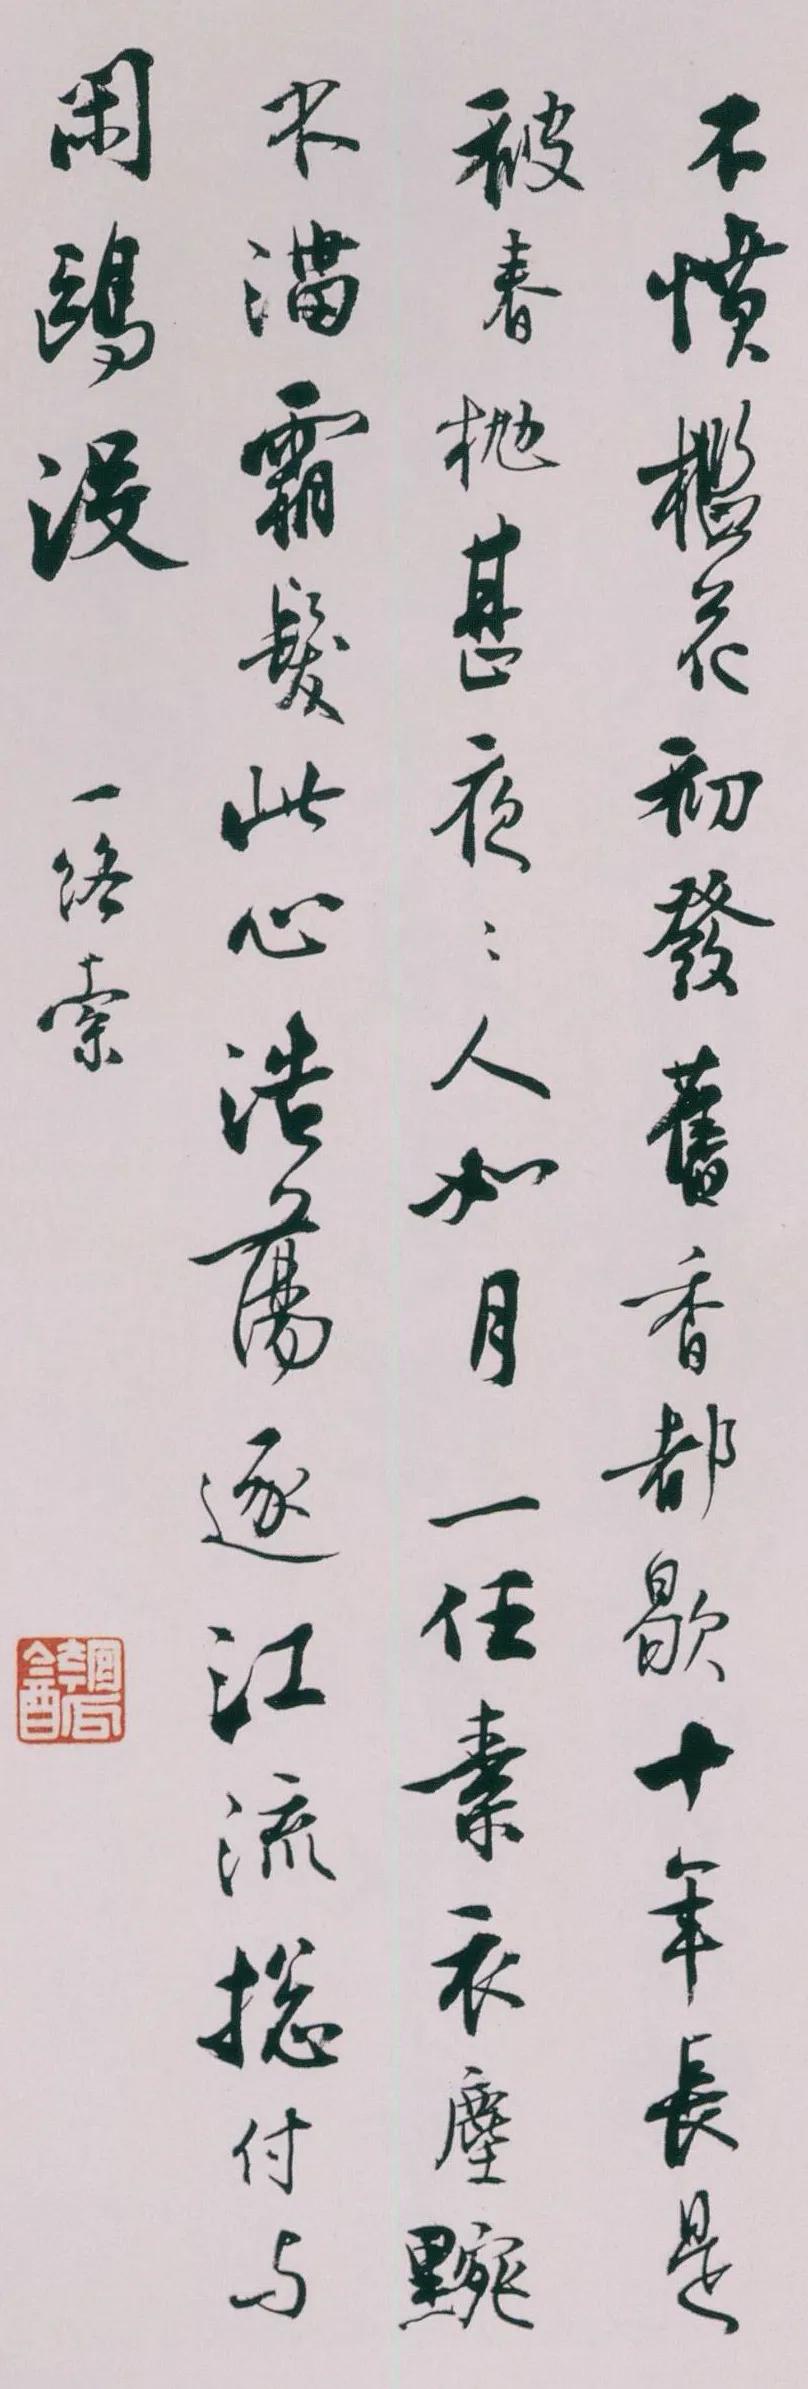 不慣檻花初發舊香都歇十年長是
被春拋甚夜〻人如月一任素衣塵黦
不滿霜髮此心浩蕩逐江流總付与
閑鷗沒
一絡索